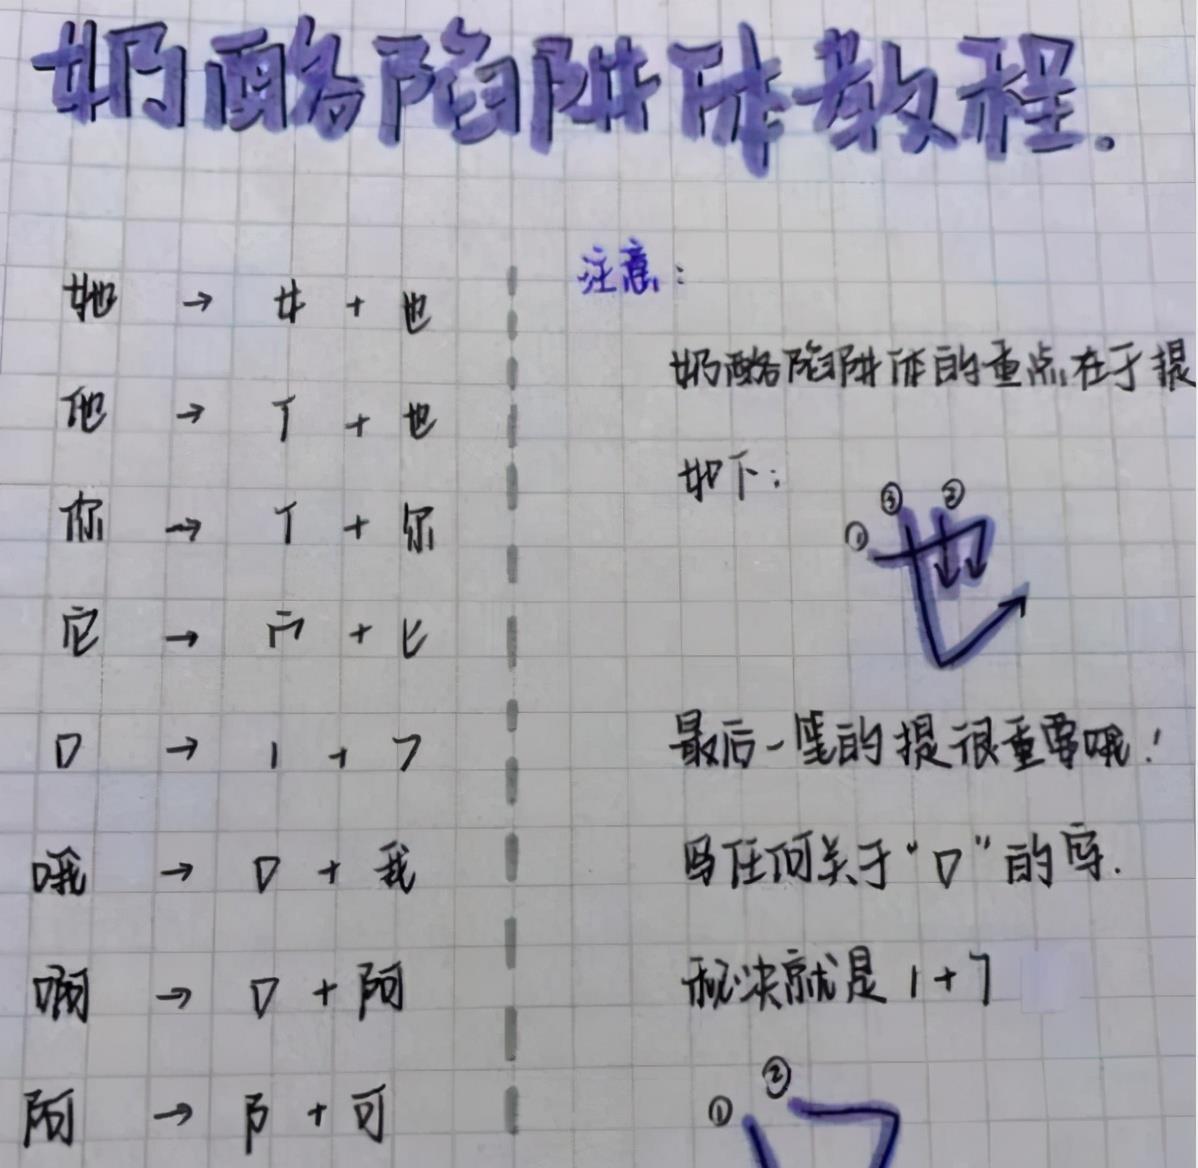 奶酪陷阱体教程.
她 → 女 + 也
他 → 亻 + 也
你 → 亻 + 尔
它 → 宀 + 匕
口 → 1 + 7
哦 → 口 + 我
啊 → 口 + 阿
阿 → 阝 + 可
注意:
奶酪陷阱体的重点在于提
如下:
① ③ ②
也
最后一笔的提很重要哦!
写任何关于“口”的字.
秘决就是 1+7
① ②